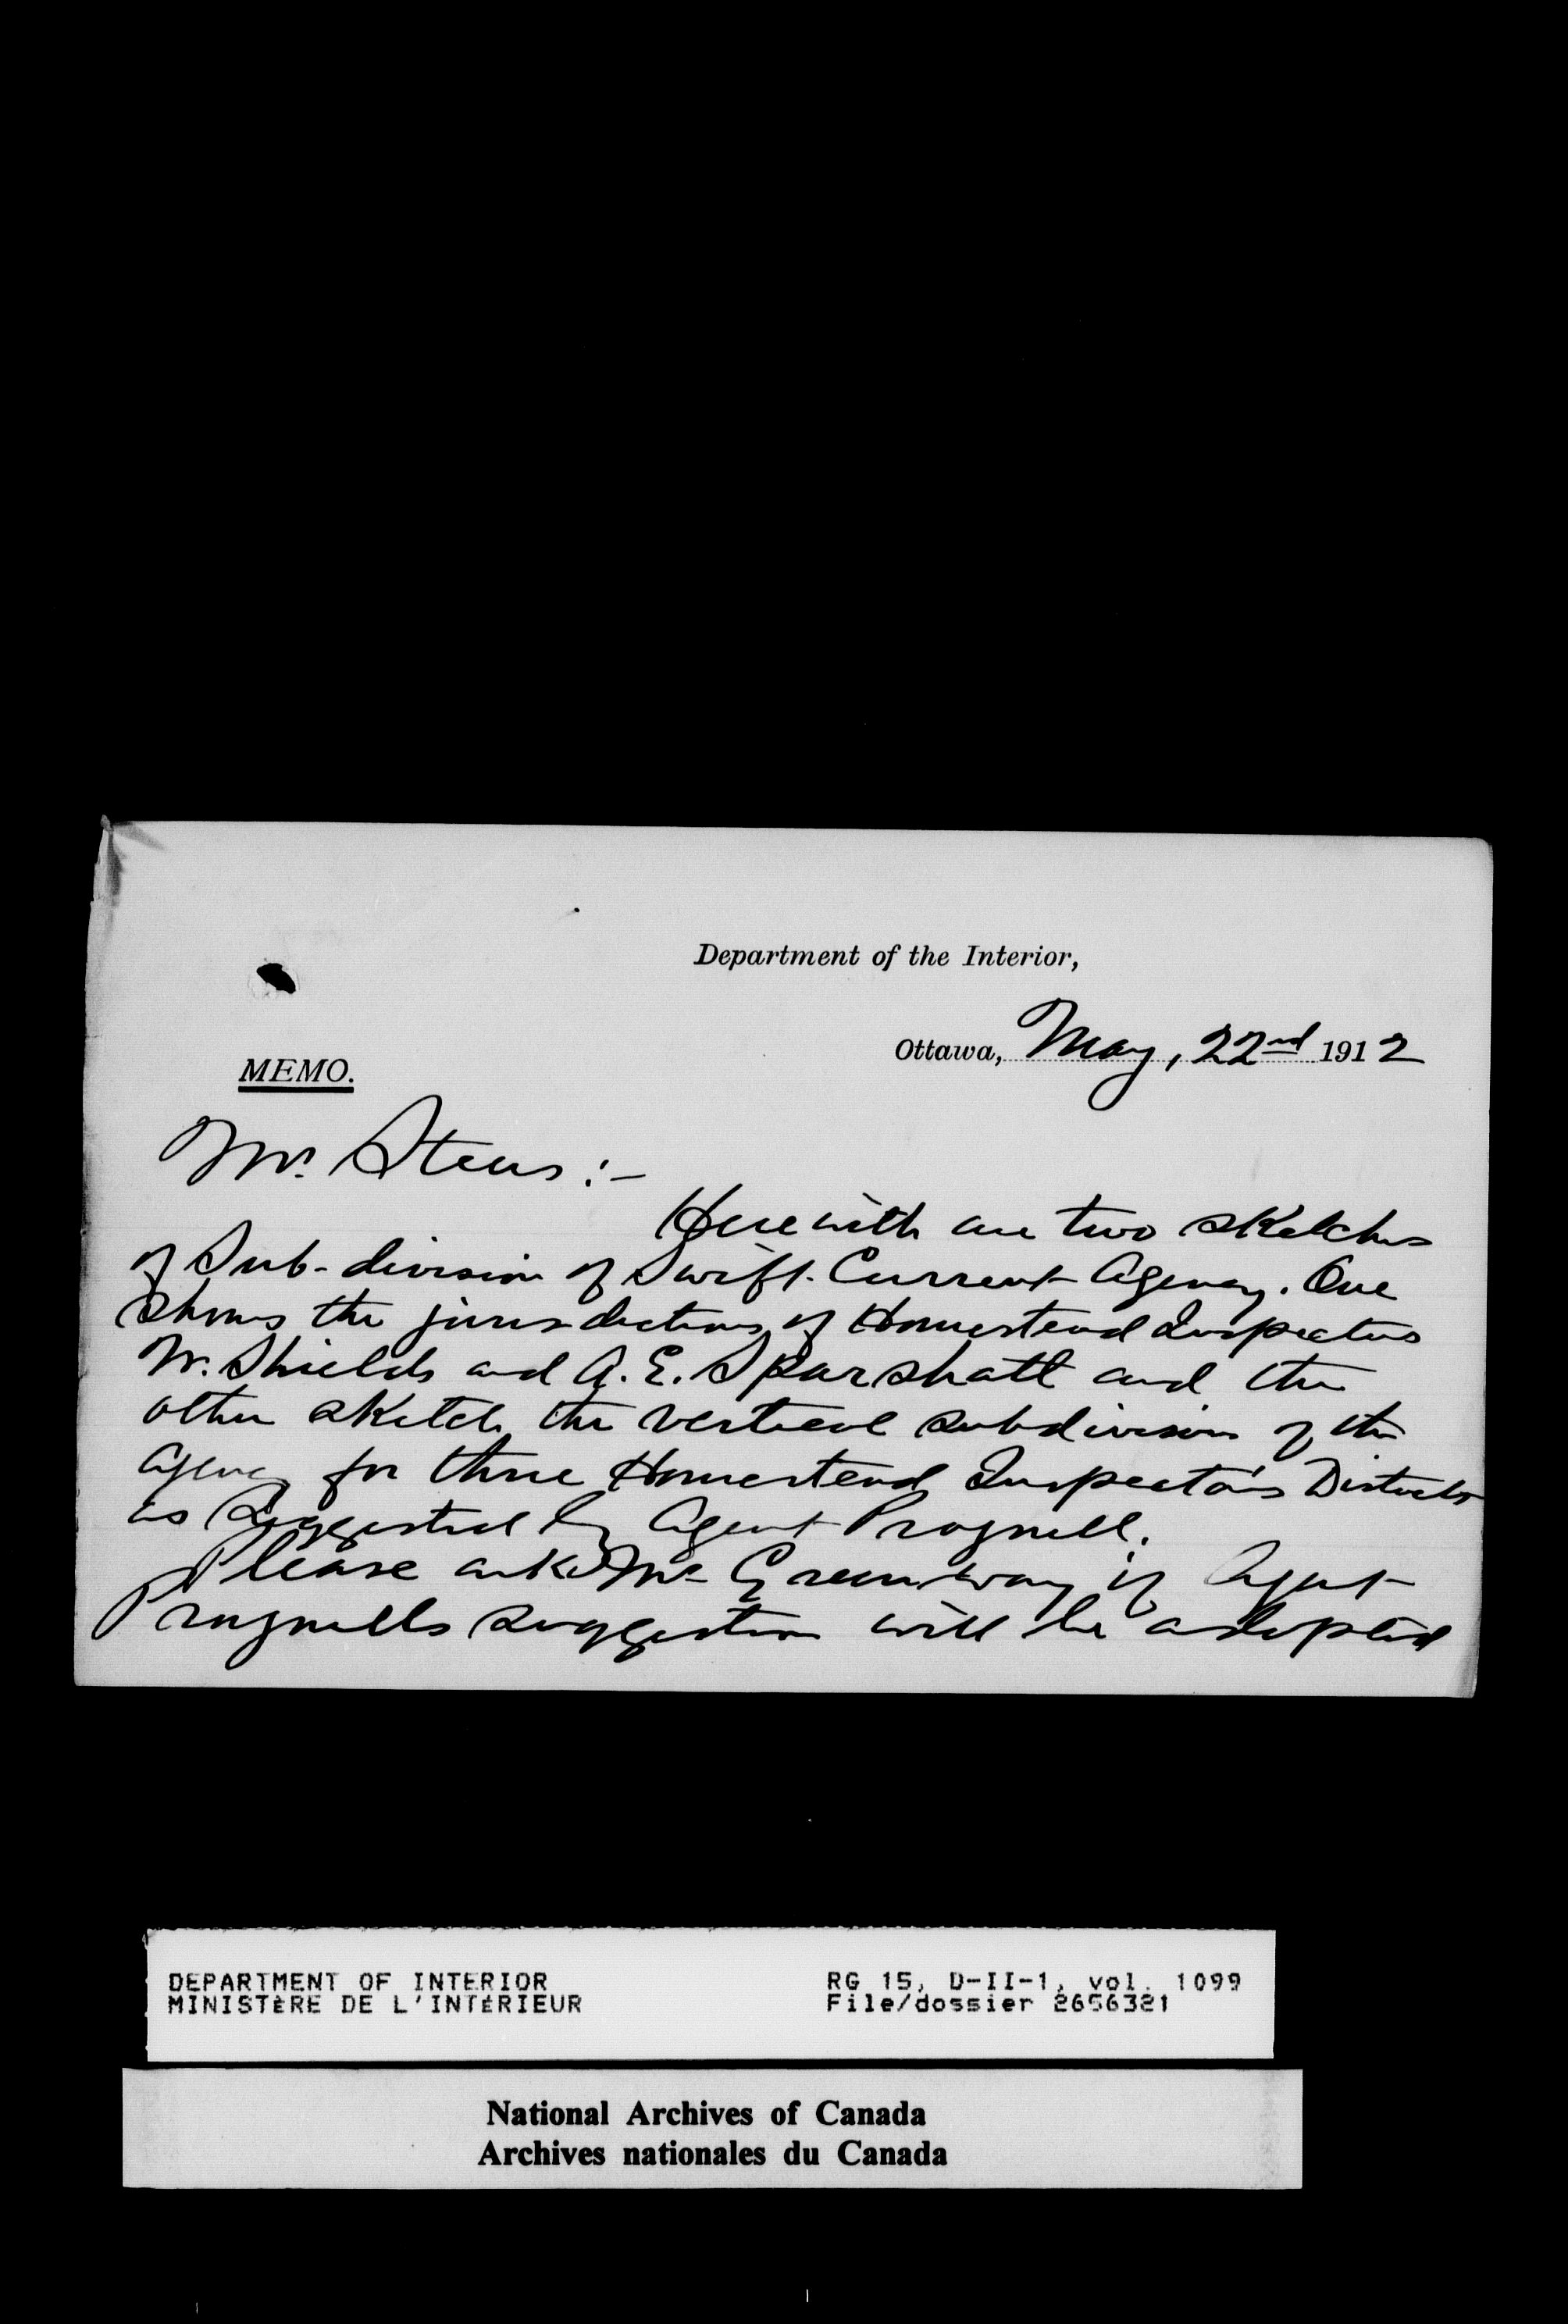 Department of the Interior,
Ottawa, May, 22nd 1912
MEMO.
Mr. Steers :-
Herewith are two sketches
of Sub-division of Swift-Current Agency. One
shows the jurisdictions of Homestead Inspectors
W. Shields and A. E. Sparshatt and the
other sketch the vertical subdivision of the
Agency for three Homestead Inspector's Districts
as suggested by Agent Prognell.
Please ask Mr Greenway if Agent
Prognells suggestion will be adopted
DEPARTMENT OF INTERIOR
MINISTÈRE DE L'INTÉRIEUR
RG 15, D-II-1, vol. 1099
File/dossier 2656321
National Archives of Canada
Archives nationales du Canada